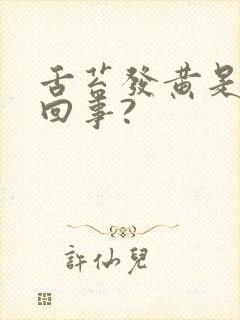 舌苔發黃是
回事?
許仙兒